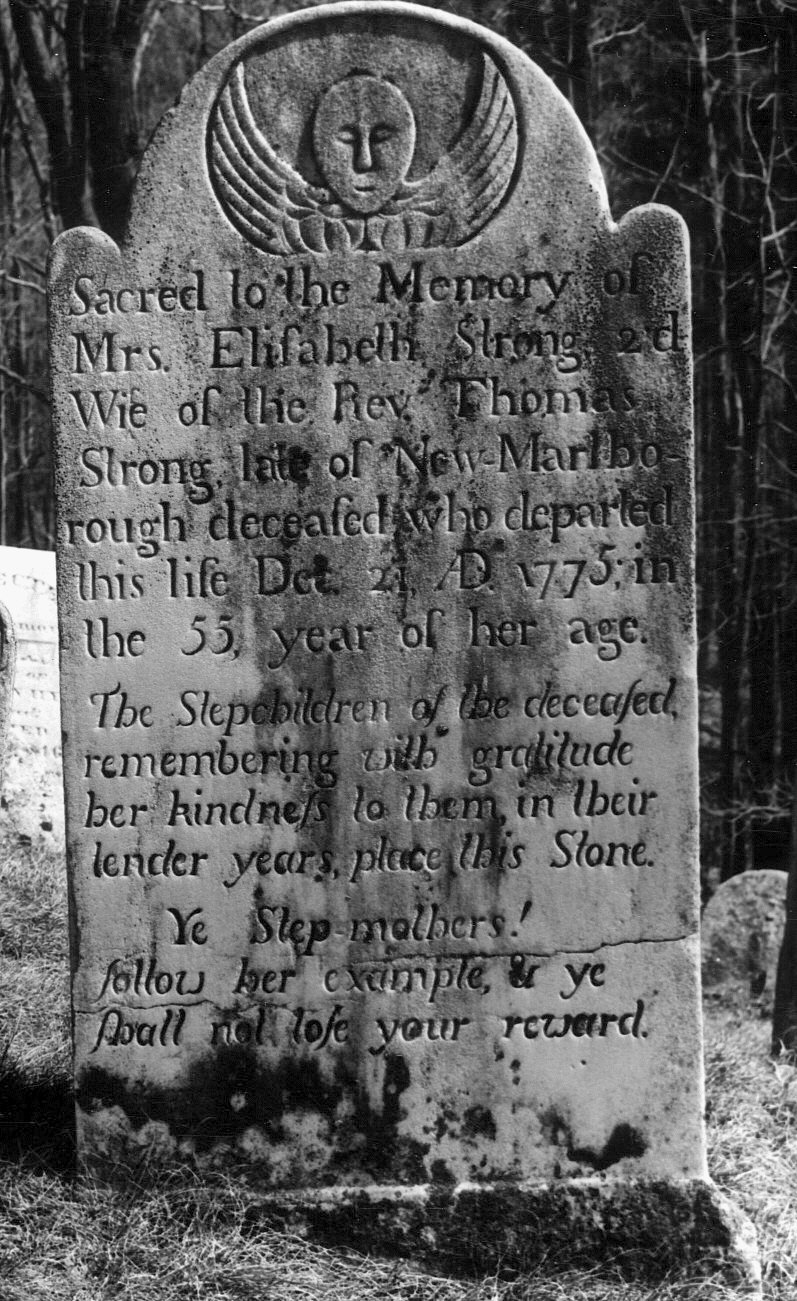 Sacred to the Memory of
Mrs. Eliſabeth Strong 2d
Wie of the Rev. Thomas
Strong, late of New-Marlbo-
rough deceaſed who departed
this life Dec. 21, AD. 1775, in
the 55, year of her age.
The Stepchildren of the deceaſed,
remembering with gratitude
her kindneſs to them, in their
tender years, place this Stone.
Ye Step-mothers!
follow her example, & ye
ſhall not loſe your reward.